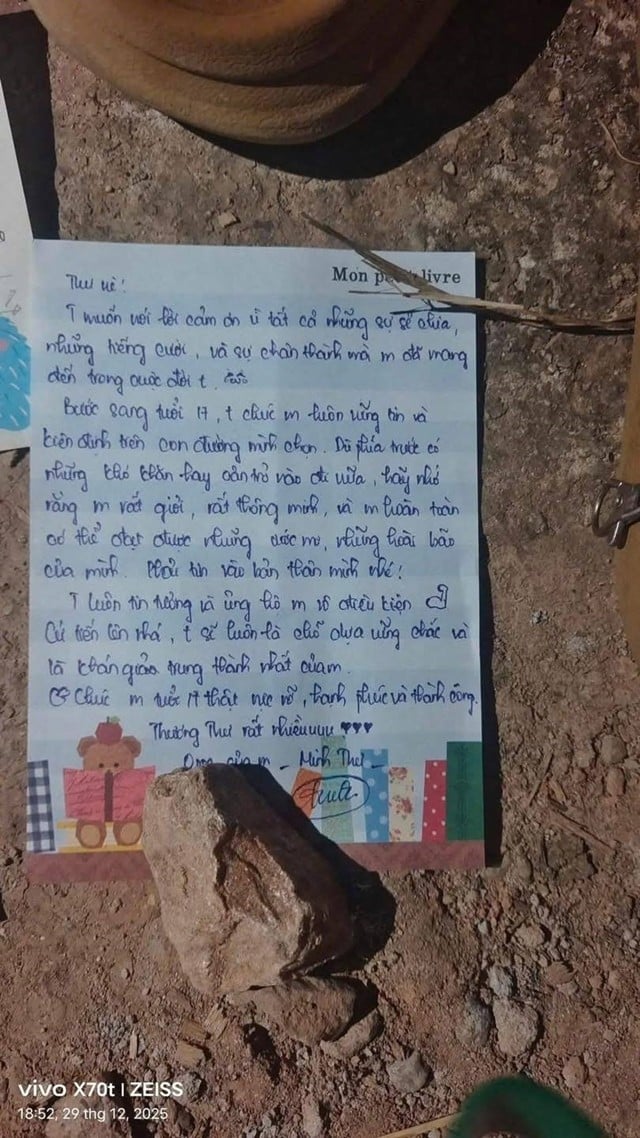 Mon pe livre
Thư nè!
T muốn nói lời cảm ơn vì tất cả những sự sẻ chia,
những tiếng cười, và sự chân thành mà m đã mang
đến trong cuộc đời t.
Bước sang tuổi 17, t chúc m luôn vững tin và
kiên định trên con đường mình chọn. Dù phía trước có
những khó khăn hay cản trở vào đi nữa, hãy nhớ
rằng m rất giỏi, rất thông minh, và m hoàn toàn
có thể đạt được những ước mơ, những hoài bão
của mình. Phải tin vào bản thân mình nhé!
T luôn tin tưởng và ủng hộ m vô điều kiện
Cứ tiến lên nhá, t sẽ luôn là chỗ dựa vững chắc và
là khán giả trung thành nhất của m.
Chúc m tuổi 17 thật rực rỡ, hạnh phúc và thành công.
Thương Thư rất nhiềuuuu ♥♥♥
của m _ Minh Thư _
vivo X70t | ZEISS
18:52, 29 thg 12, 2025